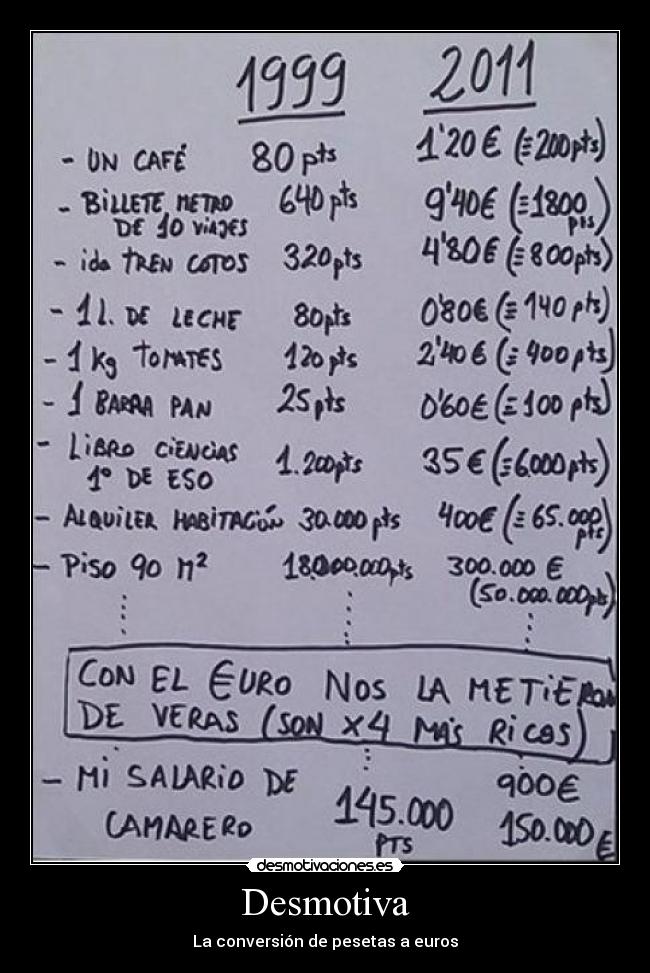 1999 2011
- UN CAFÉ 80 pts 1'20 € (≡ 200 pts)
- BILLETE METRO 640 pts 9'40€ (≡ 1800
DE 10 VIAJES pts)
- ida TREN COTOS 320 pts 4'80€ (≡ 800 pts)
- 1 L. DE LECHE 80 pts 0'80€ (≡ 140 pts)
- 1 Kg TOMATES 120 pts 2'40 € (≡ 400 pts)
- 1 BARRA PAN 25 pts 0'60€ (≡ 100 pts)
- LIBRO CIENCIAS 1.200 pts 35 € (≡ 6.000 pts)
1º DE ESO
- ALQUILER HABITACIÓN 30.000 pts 400€ (≡ 65.000
pts)
- PISO 90 M² 18.000.000 pts 300.000 €
(50.000.000 pts)
CON EL €URO NOS LA METIERON
DE VERAS (SON X4 MÁS RICOS)
- MI SALARIO DE 900€
CAMARERO 145.000 150.000 €
PTS
desmotivaciones.es
Desmotiva
La conversión de pesetas a euros